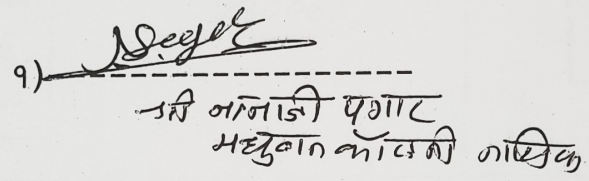 १)
श्री नानाजी पगार
मधुबन कॉलनी नाशिक